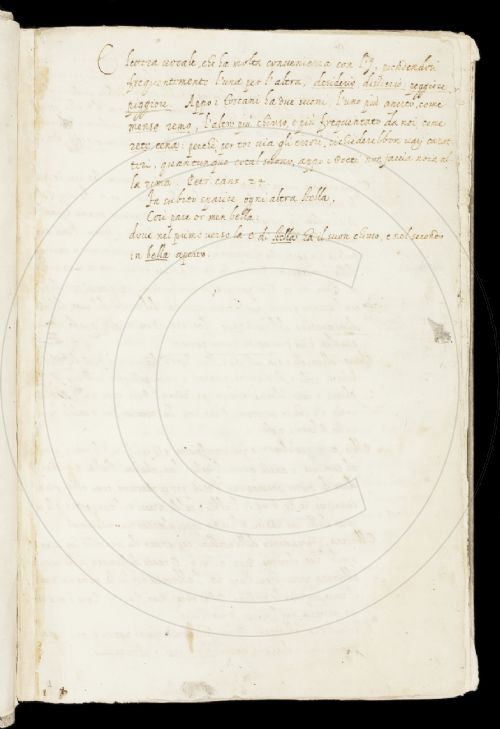 E lettera vocale, che ha molta convenienza con l'I, ponendosi
frequentemente l'una per l'altra, desiderio, disiderio, peggiore,
piggiore. Appo i Toscani ha due suoni, l'uno più aperto, come
mensa, remo, l'altro più chiuso, e più frequentato da noi, come
rete, cena: perché, per tor via gli errori,
quantunque cotal suono, appo i Poeti non faccia noia al
la rima. Petr. canz. 24.
In subito sparire ogni altra stella,
Così pare or men bella:
dove nel primo verso la e di stella ha il suon chiuso, e nel secondo
in bella aperto.